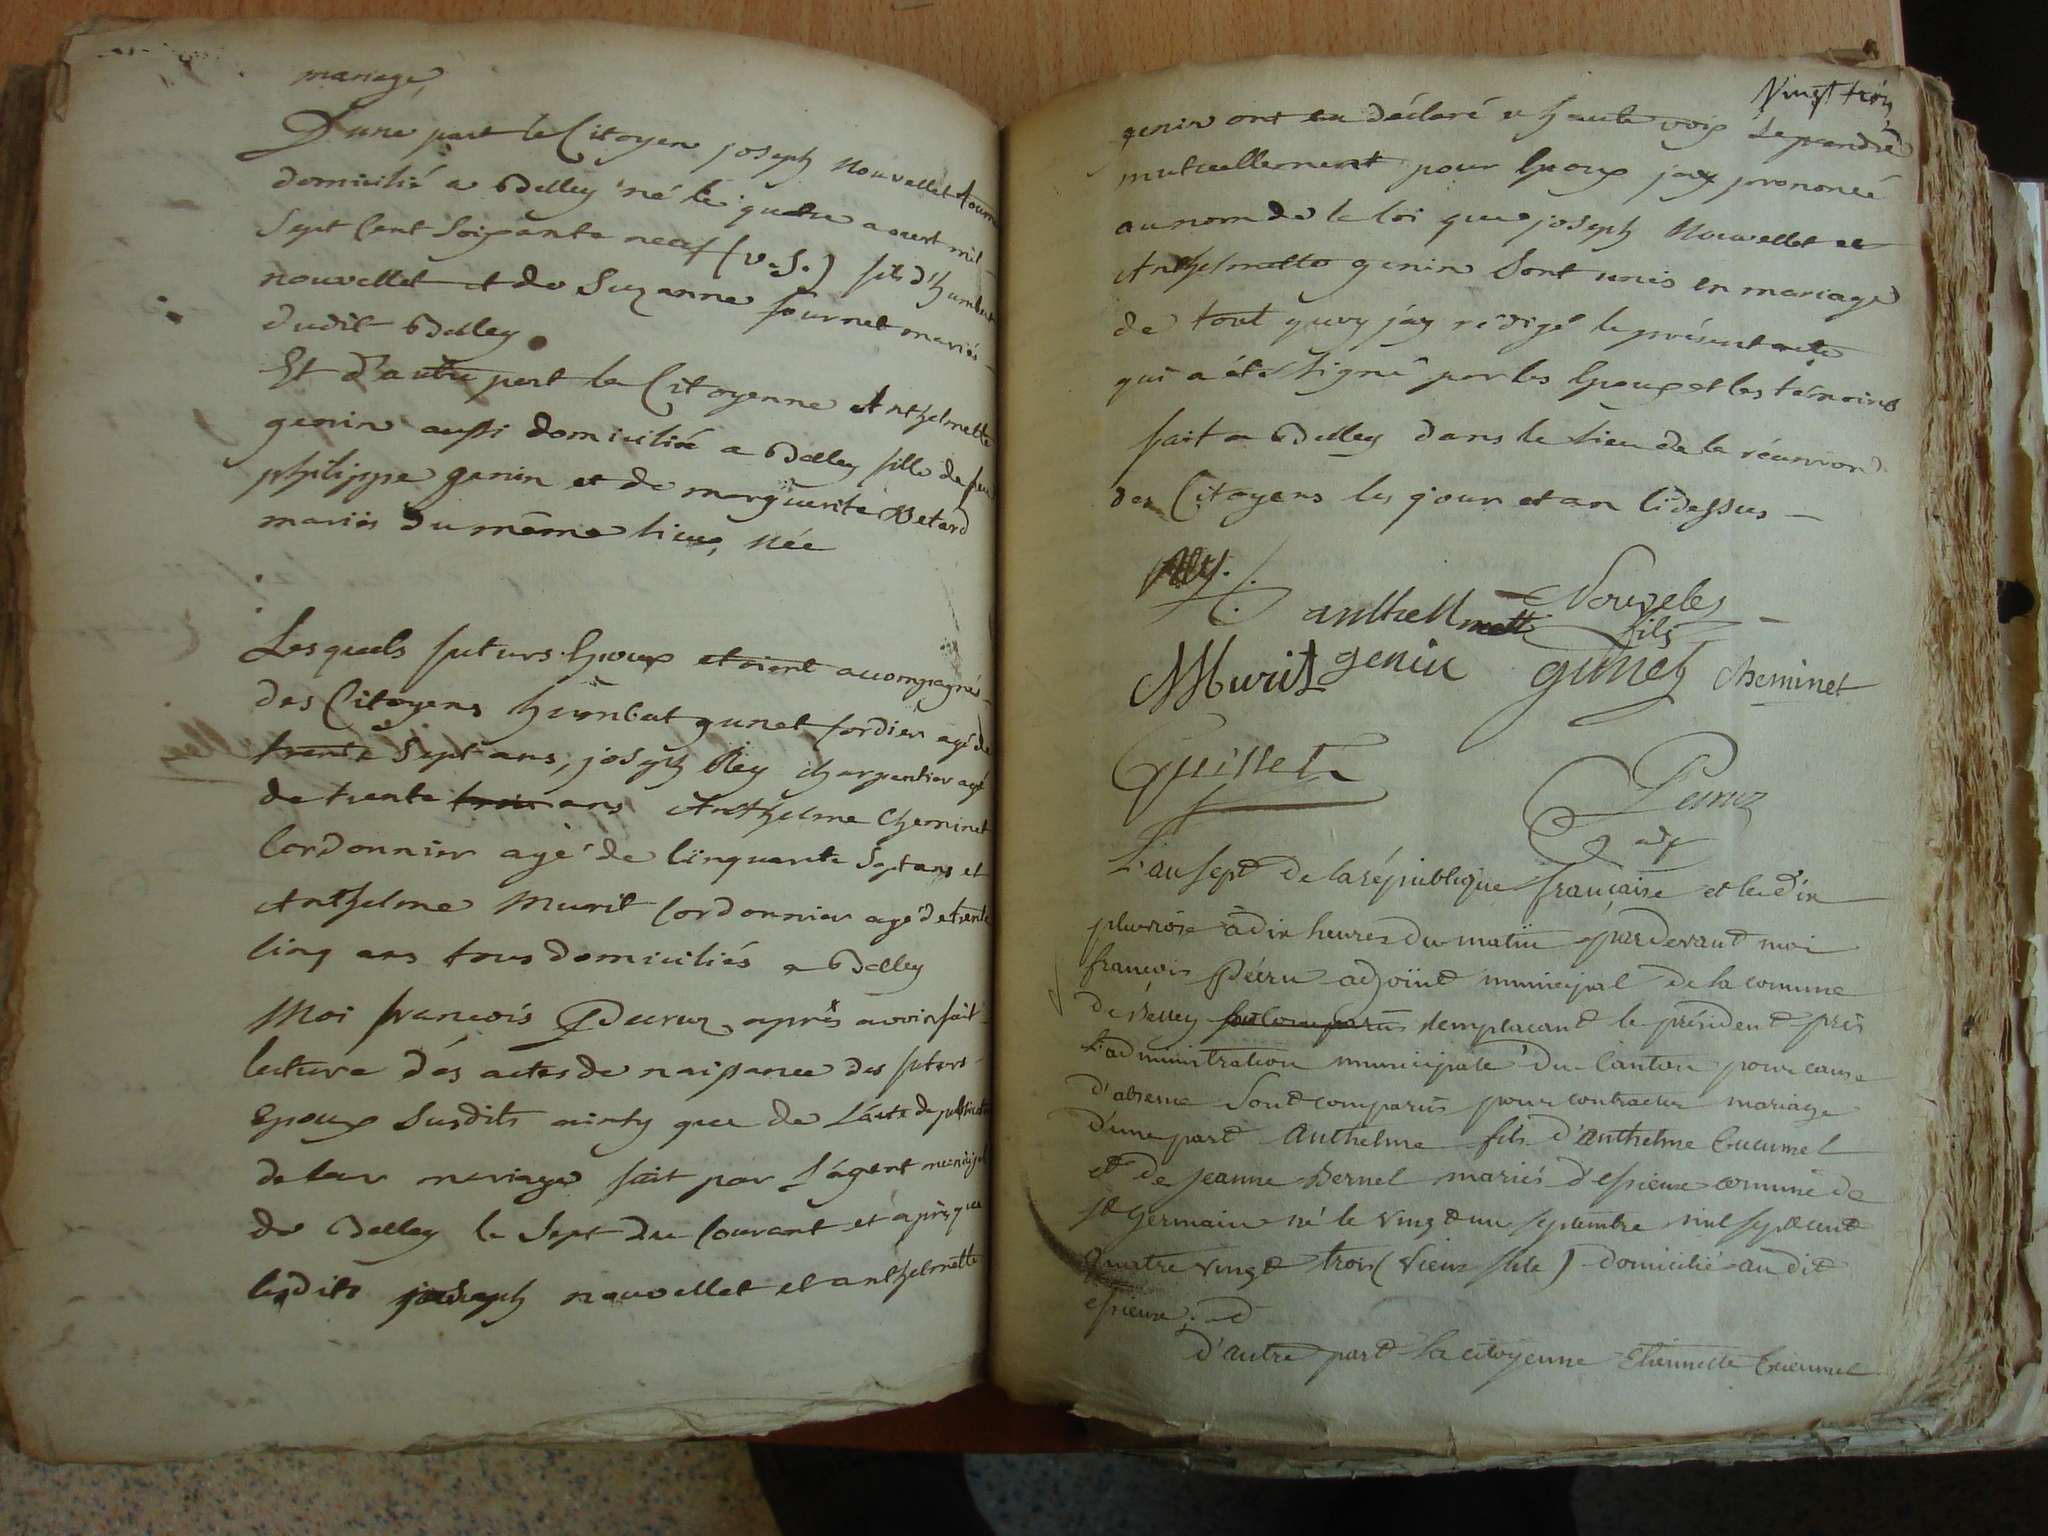 mariage
D'une part le Citoyen joseph Nouvellet
domicilié a Belley né le quatre aoust mil
Sept Cent Soixante neuf (v. S.) fils d'humbert
nouvellet et de Suzanne fournet mariés
dudit Belley
Et d'autre part la Citoyenne Anthelmette
genin aussi domiciliée a Belley fille de feu
philippe genin et de marguerite Betard
mariés du même lieu, née
Lesquels futurs Epoux etoient accompagnés
des Citoyens humbert gunet cordier agé de
trente Sept ans, joseph Rey charpentier agé
de trente trois ans Anthelme Cheminet
Cordonnier agé de Cinquante Sept ans et
Anthelme Murit Cordonnier agé de trente
Cinq ans tous domiciliés a Belley
Moi francois Peeruz après avoir fait
lecture dés actes de naissance des futurs
Epoux Susdits ainsy que de L'acte de publication
de leur mariage fait par L'agent municipal
de Belley le Sept du Courant et après que
lesdits joseph nouvellet et anthelmette
Vingt trois
genin ont déclaré a haute voix Se prendre
mutuellement pour Epoux jay prononcé
au nom de la loi que joseph Nouvellet et
Anthelmette genin Sont unis en mariage
de tout quoy j'ay rédigé le présent acte
qui a été Signé par les Epoux et les témoins
fait a Belley dans le Lieu de la réunion
des Citoyens les jour et an Cidessus
Rey
Nouveles
fils
anthellmette
genin
Murit
gunet
Cheminet
Guillet
Peeruz
adj
L'an sept de la république française et le dix
pluviose à dix heures du matin pardevant moi
françois Péeru adjoint municipal de la comune
de Belley remplacant le président près
L'administration municipale du Canton pour cause
d'absence Sont comparus pour contracter mariage
d'une part Anthelme fils d'anthelme Cucumel
et de jeanne Bernel mariés d'essieux comune de
st germain né le vingt un septembre mil sept cent
quatre vingt trois (vieux stile) domicilié audit
essieux. et
d'autre part la citoyenne Etiennette Cucumel